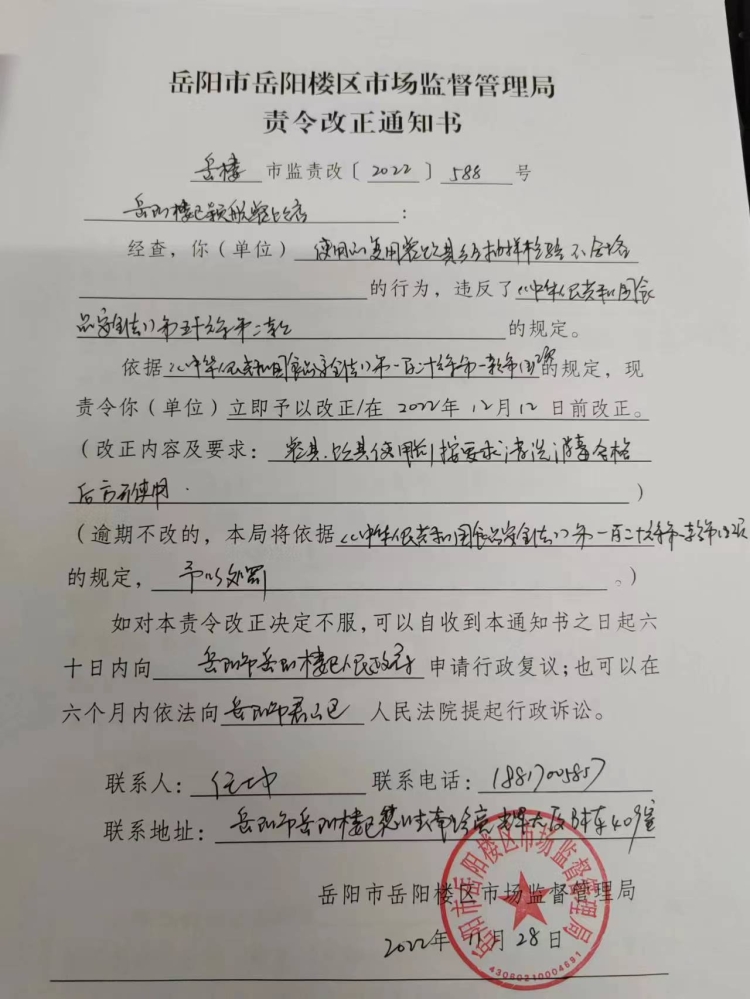 岳阳市岳阳楼区市场监督管理局
责令改正通知书
岳楼 市监责改〔 2022 〕 588 号
岳阳楼区颖 餐饮店 :
经查，你（单位） 使用的复用餐饮具经抽样检验不合格
的行为，违反了《中华人民共和国食
品安全法》第五十六条第二款 的规定。
依据《中华人民共和国食品安全法》第一百二十六条第一款第(五)项的规定，现
责令你（单位）立即予以改正/在 2022年 12月 12 日前改正。
（改正内容及要求： 餐具、饮具使用前按要求清洗消毒合格
后方可使用 . ）
（逾期不改的，本局将依据《中华人民共和国食品安全法》第一百二十六条第一款第(五)项
的规定， 予以处罚 。）
如对本责令改正决定不服，可以自收到本通知书之日起六
十日内向 岳阳市岳阳楼区人民政府 申请行政复议；也可以在
六个月内依法向 岳阳市君山区 人民法院提起行政诉讼。
联系人： 任 联系电话： 18817005857
联系地址： 岳阳市岳阳楼区 南路 大厦B栋409室
岳阳市岳阳楼区市场监督管理局
2022年 11月 28日
岳阳市岳阳楼区市场监督管理局
43060310004691